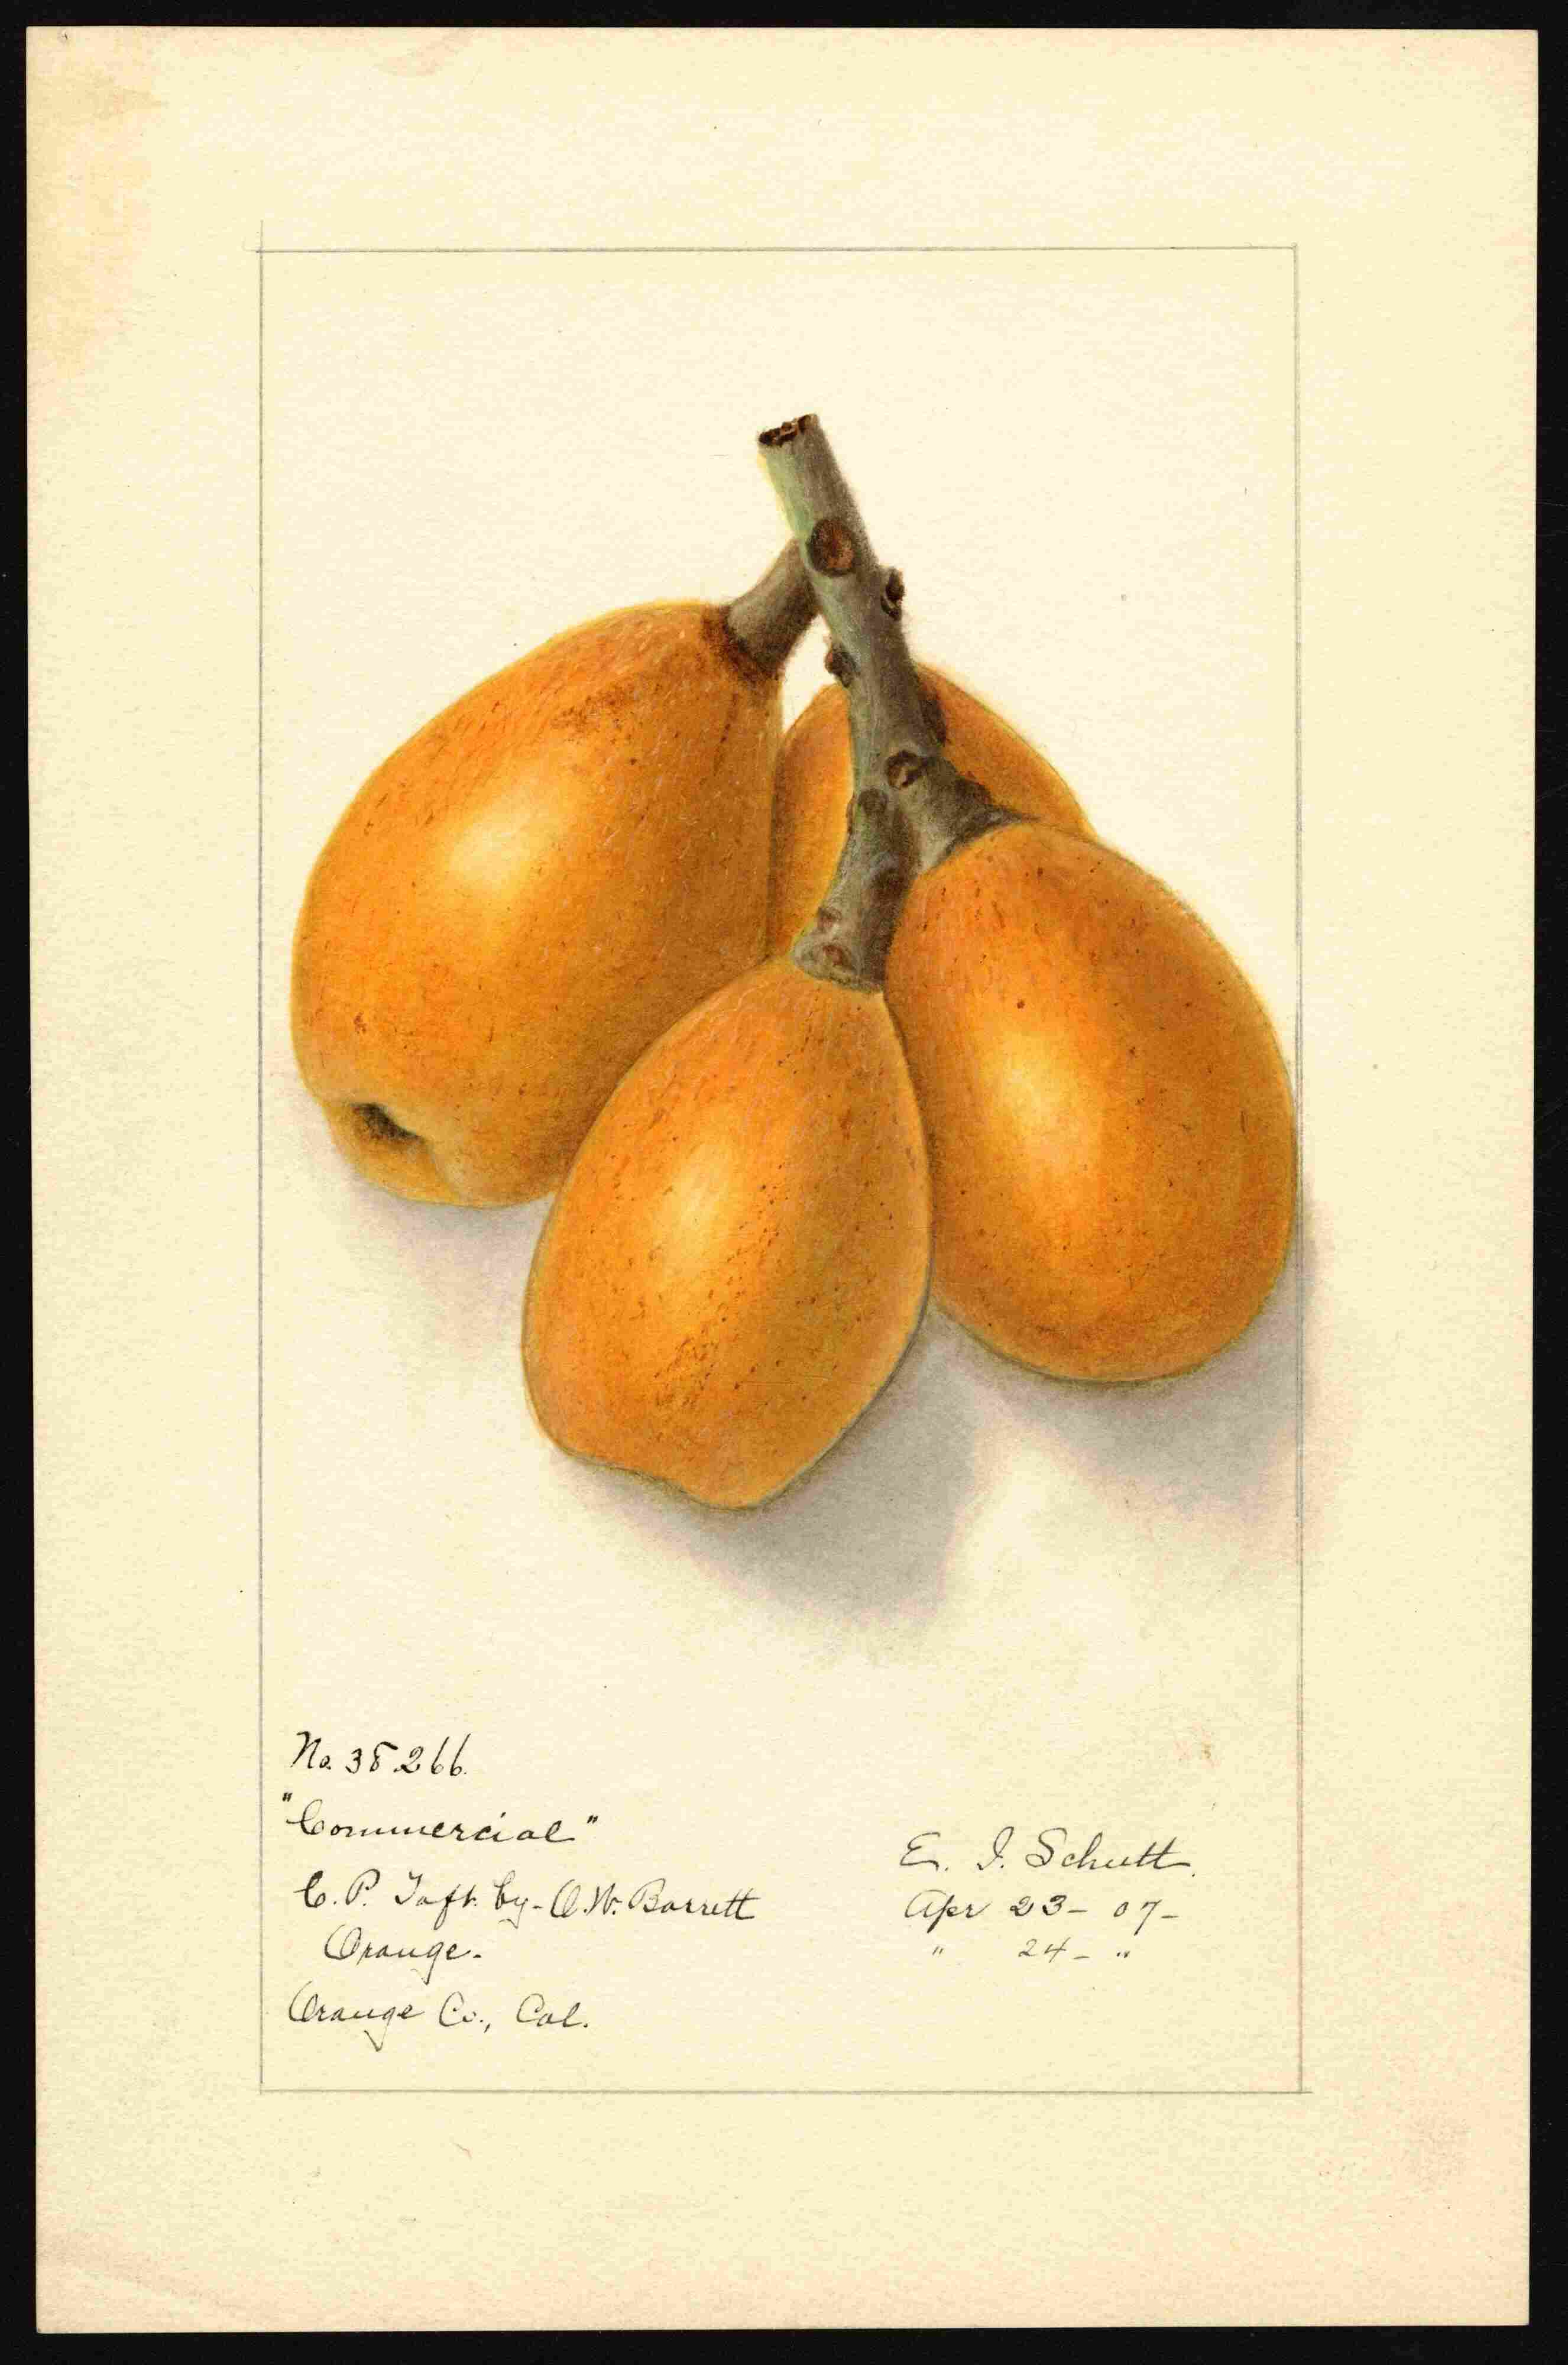 No. 38266.
"Commercial"
C. P. Taft. by - O. W. Barrett
Orange.
Orange Co., Cal.
E. I. Schutt.
Apr 23 - 07 -
" 24 - "